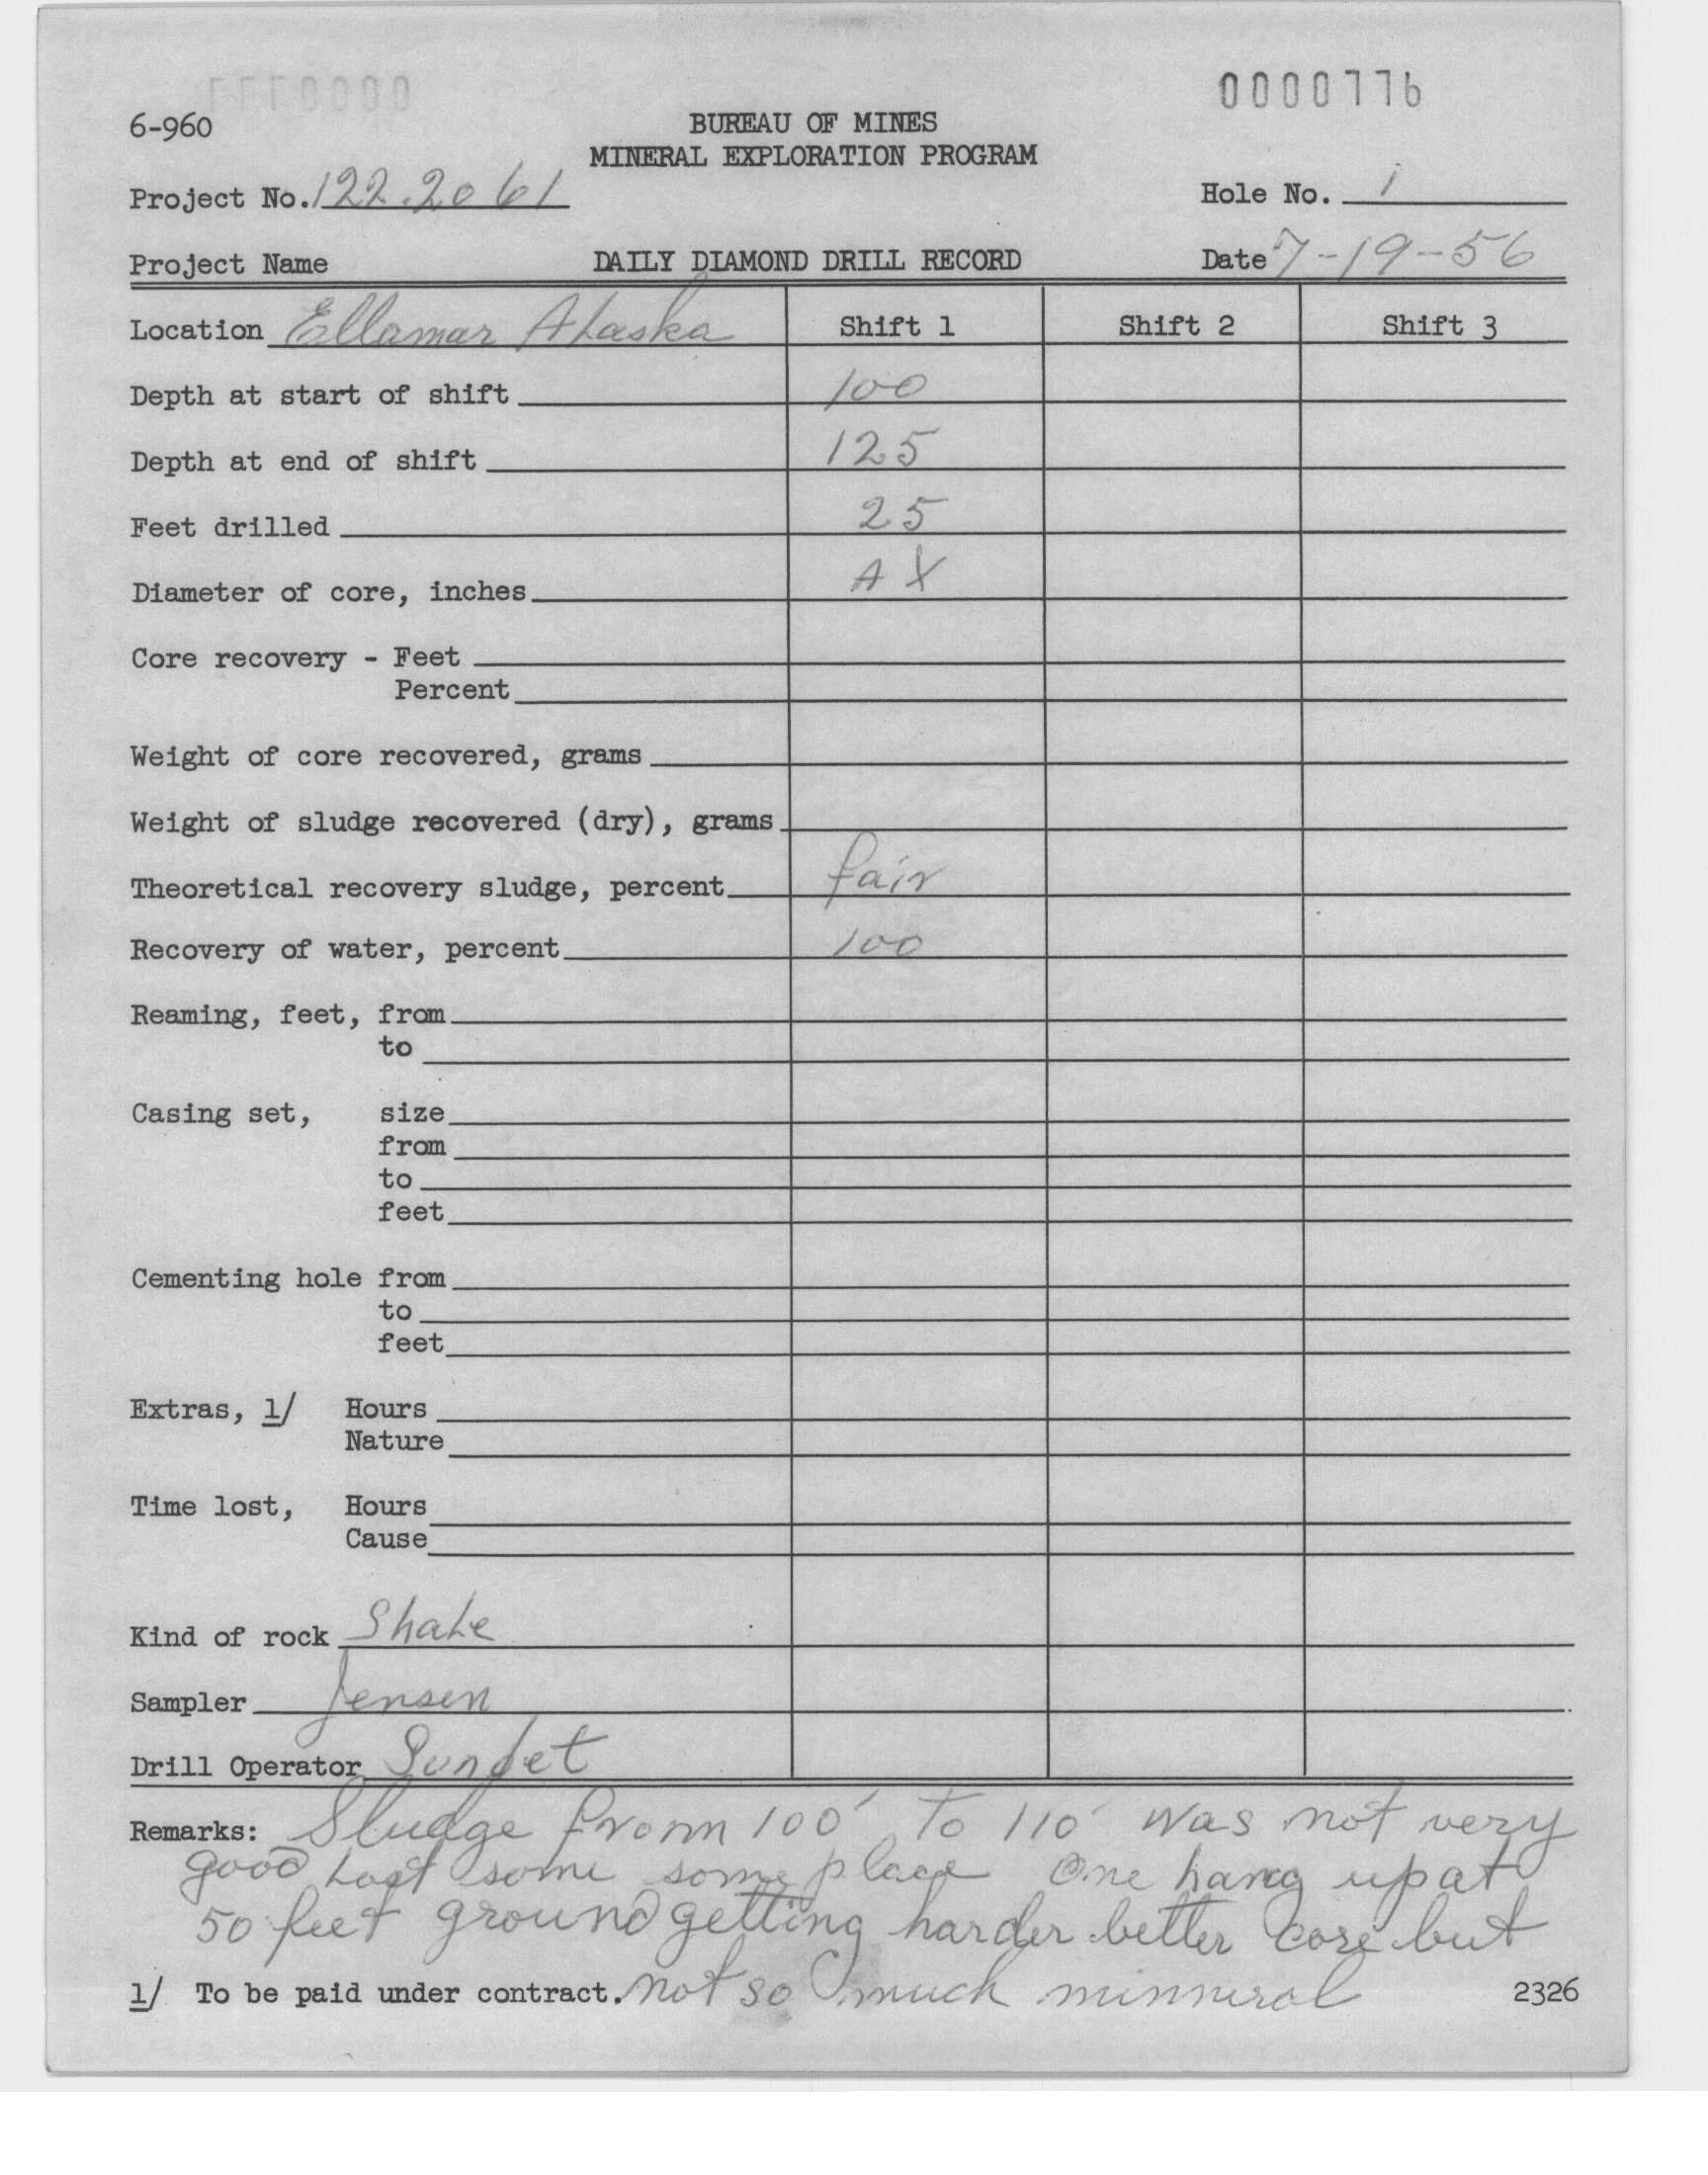 0000776
6-960
BUREAU OF MINES
MINERAL EXPLORATION PROGRAM
Project No. 122.2061
Hole No. 1
Project Name
DAILY DIAMOND DRILL RECORD
Date 7-19-56
Location Ellamar Alaska Shift 1 Shift 2 Shift 3
Depth at start of shift 100
Depth at end of shift 125
Feet drilled 25
Diameter of core, inches AX
Core recovery - Feet
Percent
Weight of core recovered, grams
Weight of sludge recovered (dry), grams
Theoretical recovery sludge, percent fair
Recovery of water, percent 100
Reaming, feet, from
to
Casing set, size
from
to
feet
Cementing hole from
to
feet
Extras, 1/ Hours
Nature
Time lost, Hours
Cause
Kind of rock Shale
Sampler Jensen
Drill Operator
Remarks: Sludge from 100' to 110' was not very
good Lost some some place One hang up at
50 feet ground getting harder better core but
1/ To be paid under contract. not so much minneral 2326